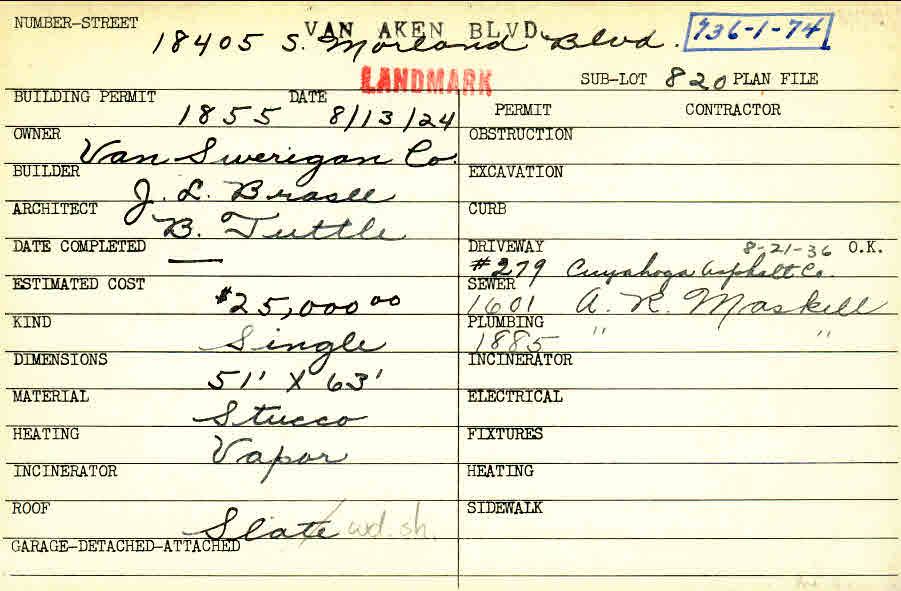 NUMBER-STREET VAN AKEN BLVD.
18405 S. Morland Blvd. 736-1-74
LANDMARK SUB-LOT 820 PLAN FILE
BUILDING PERMIT 1855 DATE 8/13/24 PERMIT CONTRACTOR
OWNER Van Swerigan Co. OBSTRUCTION
BUILDER J. L. Brasee EXCAVATION
ARCHITECT B. Tuttle CURB
DATE COMPLETED — DRIVEWAY 8-21-36 O.K.
#279 Cuyahoga Asphalt Co.
ESTIMATED COST $25,000 00 SEWER 1601 A. R. Maskell
KIND Single PLUMBING 1885 " "
DIMENSIONS 51' X 63' INCINERATOR
MATERIAL Stucco ELECTRICAL
HEATING Vapor FIXTURES
INCINERATOR HEATING
ROOF Slate wd. sh. SIDEWALK
GARAGE-DETACHED-ATTACHED